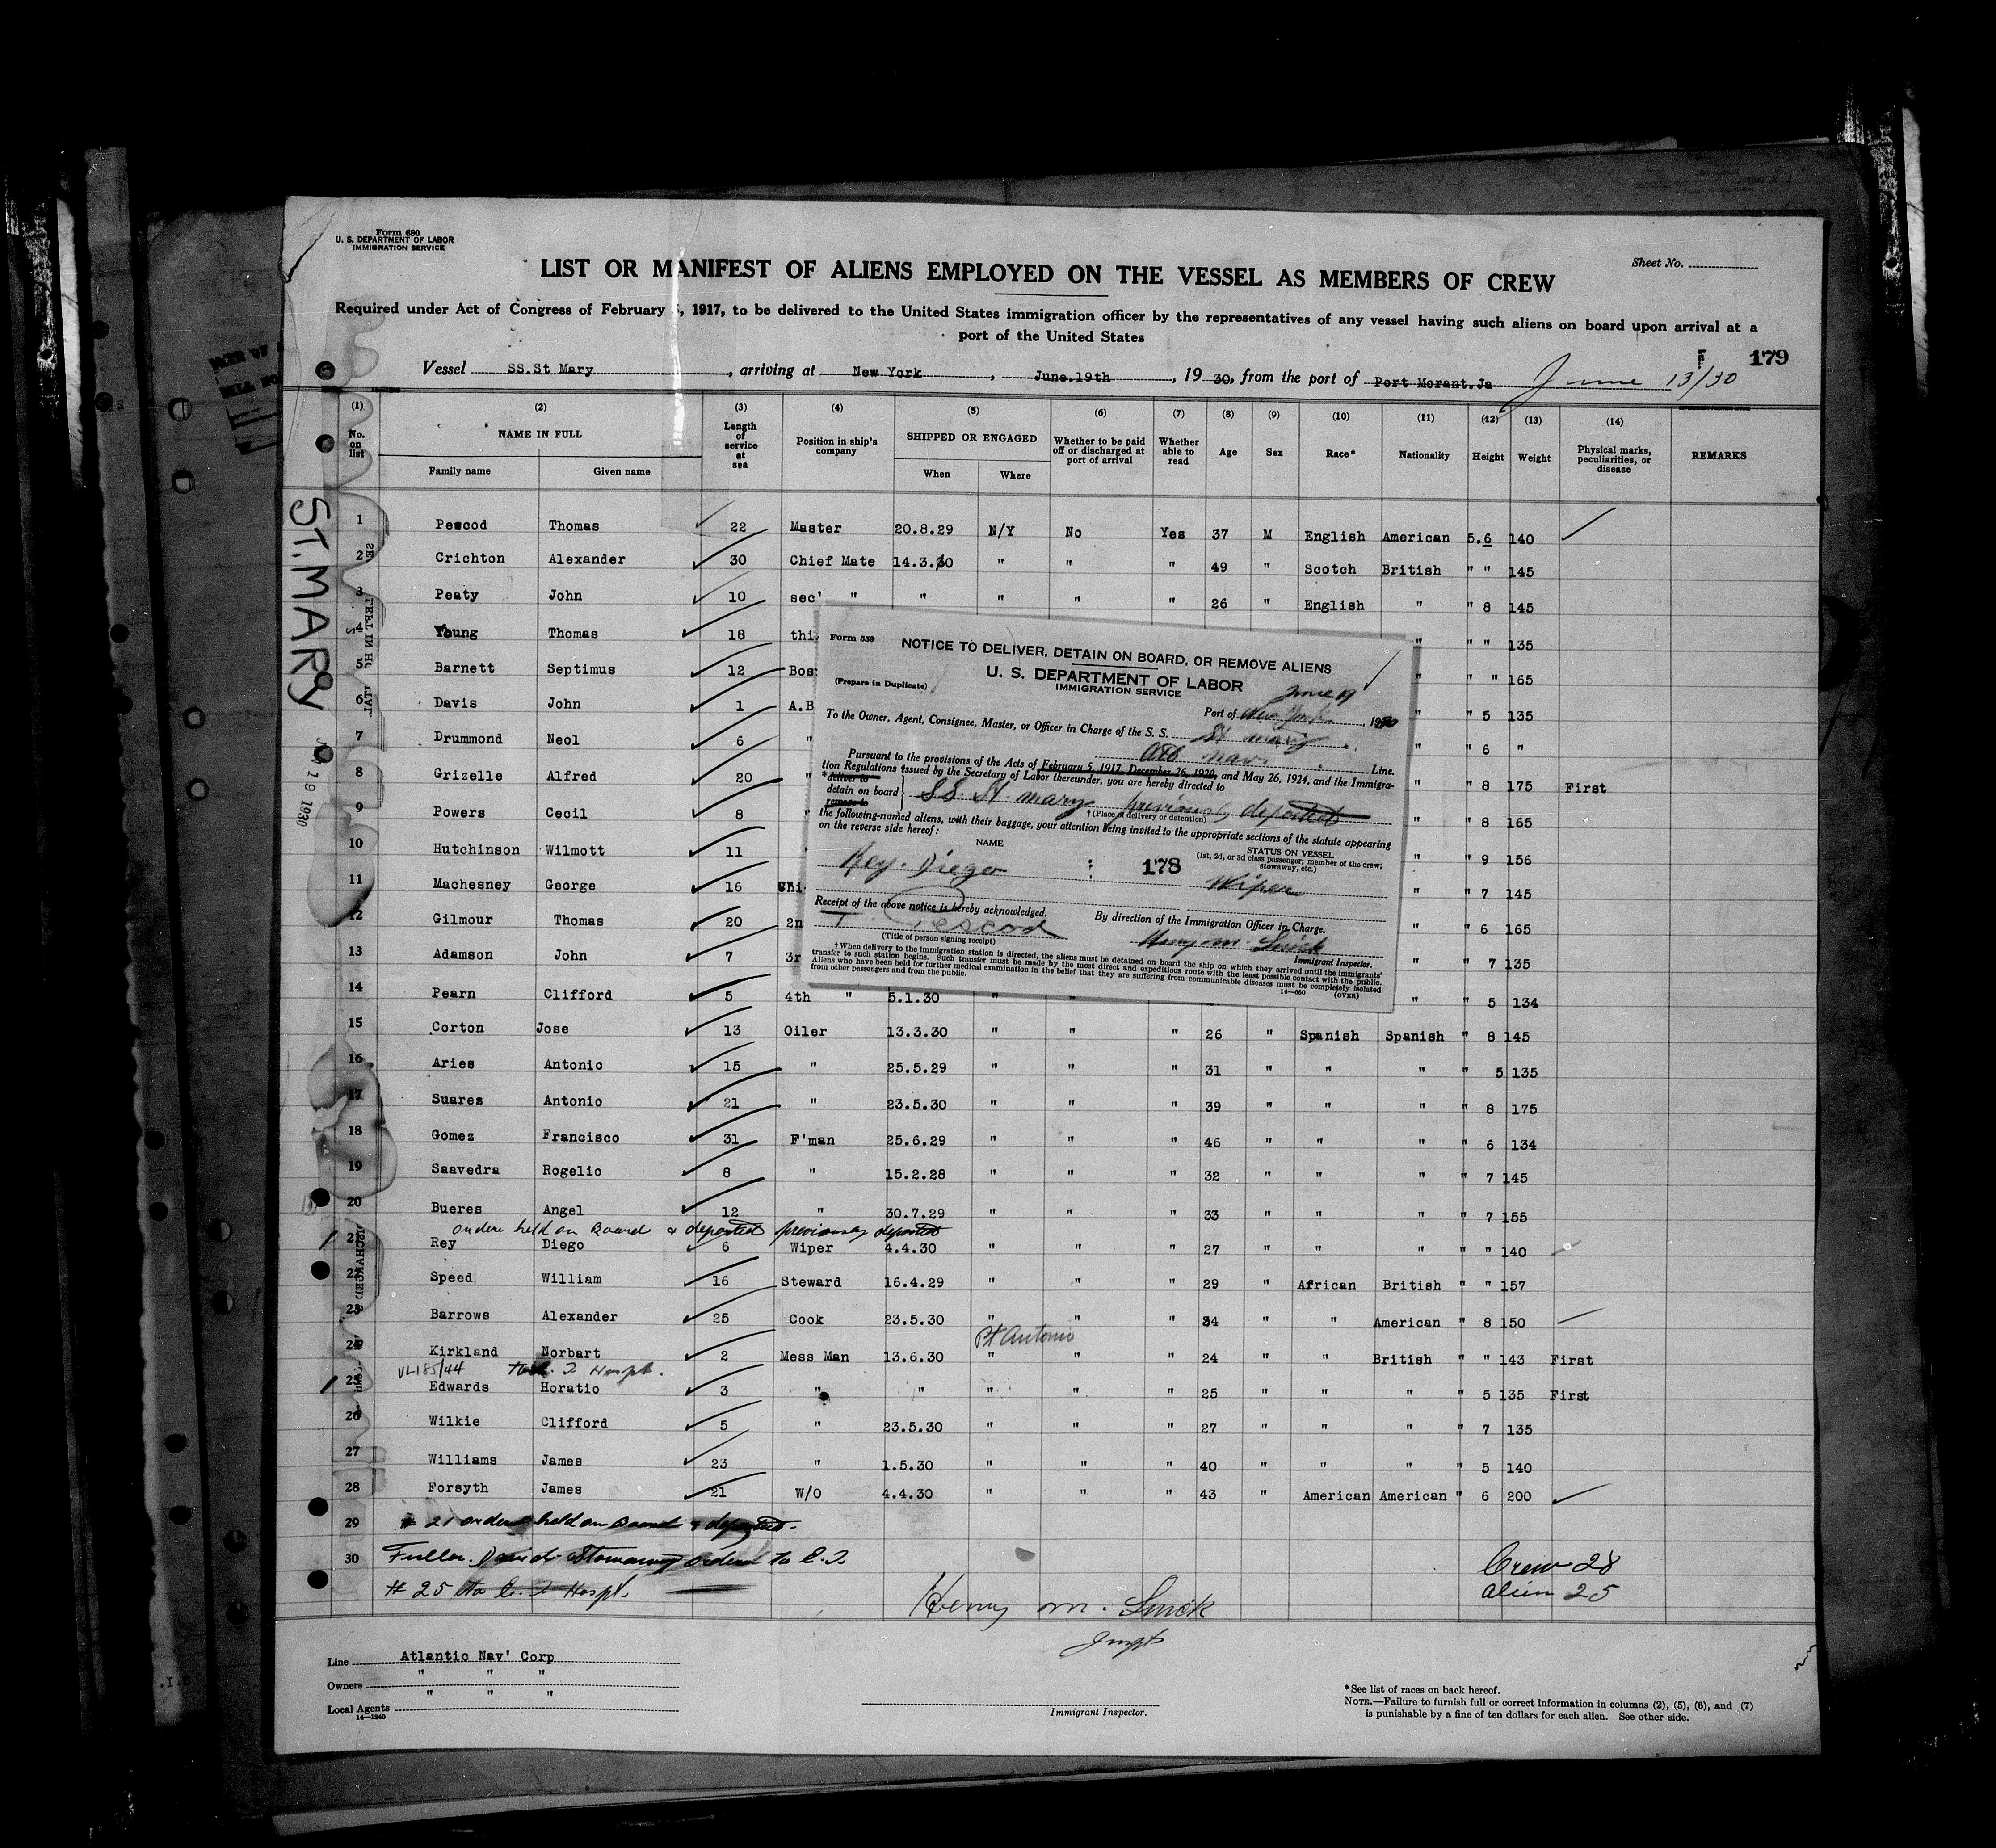 Form 680
U. S. DEPARTMENT OF LABOR
IMMIGRATION SERVICE
Sheet No.
LIST OR MANIFEST OF ALIENS EMPLOYED ON THE VESSEL AS MEMBERS OF CREW
Required under Act of Congress of February 5, 1917, to be delivered to the United States immigration officer by the representatives of any vessel having such aliens on board upon arrival at a
port of the United States
179
Vessel SS.St Mary, arriving at New York, June.19th, 19 30, from the port of Port Morant.Ja June 13/30
(1) (2) (3) (4) (5) (6) (7) (8) (9) (10) (11) (12) (13) (14)
No. on list NAME IN FULL Family name Given name Length of service at sea Position in ship's company SHIPPED OR ENGAGED When Where Whether to be paid off or discharged at port of arrival Whether able to read Age Sex Race* Nationality Height Weight Physical marks, peculiarities, or disease REMARKS
ST. MARY
1 Pescod Thomas 22 Master 20.8.29 N/Y No Yes 37 M English American 5.6 140
2 Crichton Alexander 30 Chief Mate 14.3.30 " " " 49 " Scotch British " " 145
3 Peaty John 10 sec' " " " " " 26 " English " " 8 145
4 Young Thomas 18 thi " " " 135
5 Barnett Septimus 12 Bos " " " 165
6 Davis John 1 A.B " " 5 135
7 Drummond Neol 6 " " " 6 "
8 Grizelle Alfred 20 " " " 8 175 First
9 Powers Cecil 8 " " " 8 165
10 Hutchinson Wilmott 11 " " 9 156
11 Machesney George 16 Chi " " 7 145
12 Gilmour Thomas 20 2n " " 6 165
13 Adamson John 7 3r " " 7 135
14 Pearn Clifford 5 4th " 5.1.30 " " " " 5 134
15 Corton Jose 13 Oiler 13.3.30 " " " 26 " Spanish Spanish " 8 145
16 Aries Antonio 15 " 25.5.29 " " " 31 " " " " 5 135
17 Suares Antonio 21 " 23.5.30 " " " 39 " " " " 8 175
18 Gomez Francisco 31 F'man 25.6.29 " " " 46 " " " " 6 134
19 Saavedra Rogelio 8 " 15.2.28 " " " 32 " " " " 7 145
20 Bueres Angel 12 " 30.7.29 " " " 33 " " " " 7 155
held on Board & deported previously deported
21 Rey Diego 6 Wiper 4.4.30 " " " 27 " " " " " 140
22 Speed William 16 Steward 16.4.29 " " " 29 " African British " " 157
23 Barrows Alexander 25 Cook 23.5.30 " " " 34 " " American " 8 150
Pt Antonio
24 Kirkland Norbart 2 Mess Man 13.6.30 " " " 24 " " British " " 143 First
Hospt.
25 Edwards Horatio 3 " " " " " 25 " " " " 5 135 First
26 Wilkie Clifford 5 " 23.5.30 " " " 27 " " " " 7 135
27 Williams James 23 " 1.5.30 " " " 40 " " " " 5 140
28 Forsyth James 21 W/O 4.4.30 " " " 43 " American American " 6 200
29 # 21 held on Board & deported.
30 Fuller David Stowaway to E.I.
# 25 to E. I Hospt.
Crew 28
alien 25
Henry M. Smick
Inspt
Form 539
NOTICE TO DELIVER, DETAIN ON BOARD, OR REMOVE ALIENS
U. S. DEPARTMENT OF LABOR
IMMIGRATION SERVICE
(Prepare in Duplicate)
June 19
Port of New York, 1930
To the Owner, Agent, Consignee, Master, or Officer in Charge of the S. S. St Mary
Line.
Pursuant to the provisions of the Acts of February 5, 1917, December 26, 1920, and May 26, 1924, and the Immigra-
tion Regulations issued by the Secretary of Labor thereunder, you are hereby directed to
*deliver to
detain on board SS. St Mary previously deported
remove to
†(Place of delivery or detention)
the following-named aliens, with their baggage, your attention being invited to the appropriate sections of the statute appearing
on the reverse side hereof:
NAME
STATUS ON VESSEL
(1st, 2d, or 3d class passenger; member of the crew;
stowaway, etc.)
Rey. Diego : 178 Wiper
Receipt of the above notice is hereby acknowledged.
By direction of the Immigration Officer in Charge.
T. Pescod
(Title of person signing receipt)
Henry M. Smick
Immigrant Inspector.
†When delivery to the immigration station is directed, the aliens must be detained on board the ship on which they arrived until the immigrants'
transfer to such station begins. Such transfer must be made by the most direct and expeditious route with the least possible contact with the public.
Aliens who have been held for further medical examination in the belief that they are suffering from communicable diseases must be completely isolated
from other passengers and from the public.
14—660 (OVER)
Line Atlantic Nav' Corp
Owners " " "
Local Agents " " "
14—1240
Immigrant Inspector.
*See list of races on back hereof.
NOTE.—Failure to furnish full or correct information in columns (2), (5), (6), and (7)
is punishable by a fine of ten dollars for each alien. See other side.